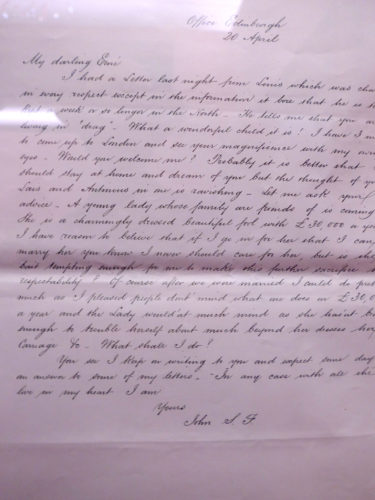 Office Edinburgh
20 April
My darling Erné
I had a Letter last night from Louis which was cha
in every respect except in the information it bore that he is to
but a week or so longer in the North. He tells me that you are
living in "drag". What a wonderful child it is! I have
to come up to London and see your magnificence with my own
eyes. Would you welcome me? Probably it is better that
should stay at home and dream of you. But the thought of you
Lais and Antinous in one is ravishing. Let me ask your
advice. A young lady whose family are friends of is coming
She is a charmingly dressed beautiful fool with £30,000 a year
I have reason to believe that if I go in for her that I can
marry her you know I never should care for her but is the
bait tempting enough for me to make this further sacrifice to
respectability? Of course after we were married I could do pre
much as I pleased people dont mind what one does on £30,0
a year and the Lady would'nt much mind as she has'nt br
enough to trouble herself about much beyond her dresses her
Carriage &c. What shall I do?
You see I keep on writing to you and expect some day
an answer to some of my letters. In any case with all the
love in my heart I am
Yours
John S. F.